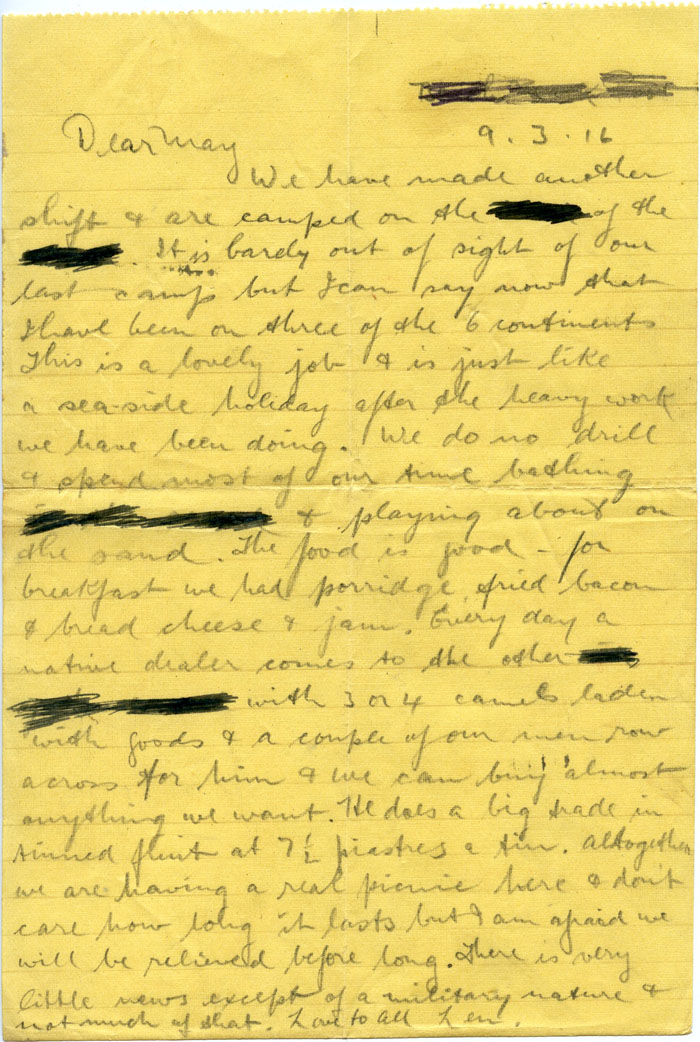 9.3.16
Dear May
We have made another
shift & are camped on the of the
. It is bardy out of sight of our
last camp but I can say now that
I have been on three of the 6 continents
This is a lovely job & is just like
a sea-side holiday after the heavy work
we have been doing. We do no drill
& spend most of our time bathing
& playing about on
the sand. The food is good - for
breakfast we had porridge, fried bacon
& bread cheese & jam. Every day a
native dealer comes to the other
with 3 or 4 camels laden
with goods & a couple of our men row
across for him & we can buy almost
anything we want. He does a big trade in
tinned fruit at 7½ piastres a tin. Altogether
we are having a real picnic here & don't
care how long it lasts but I am afraid we
will be relieved before long. There is very
little news except of a military nature &
not much of that. Love to all Len.